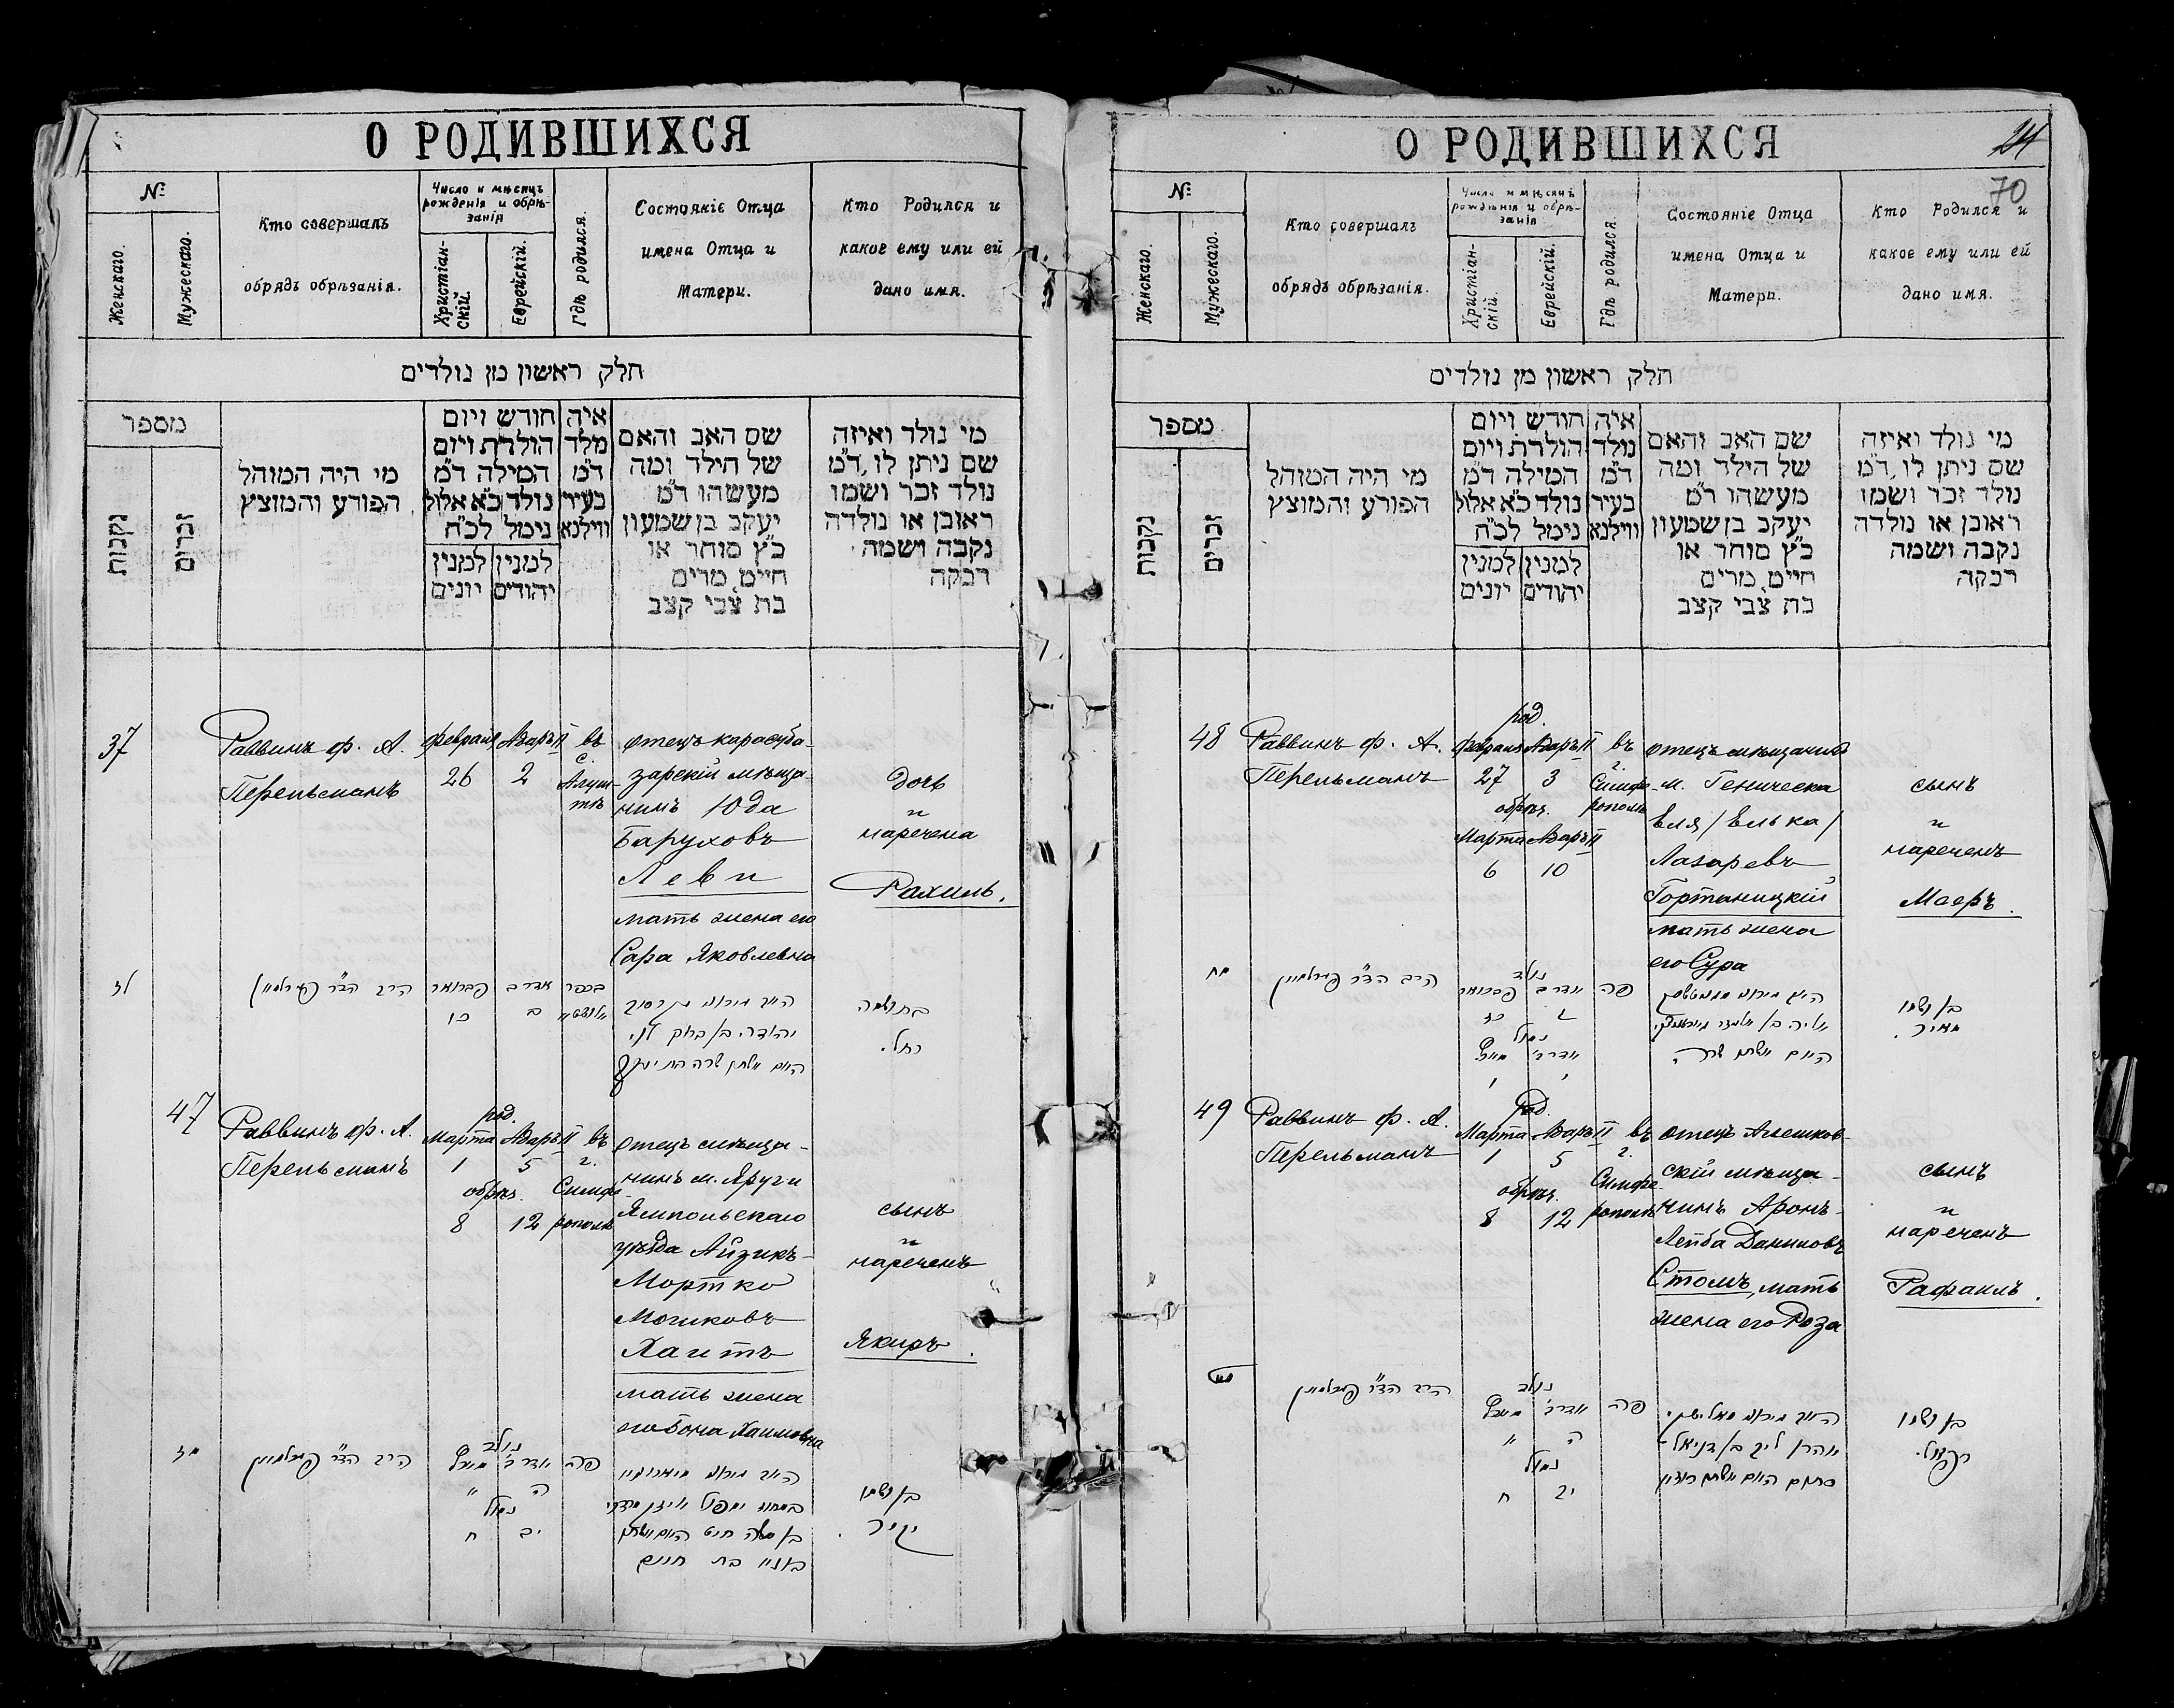 О РОДИВШИХСЯ
№
Женскаго.
Мужескаго.
Кто совершалъ
обрядъ обрѣзанія.
Число и мѣсяцъ
рожденія и обрѣ-
занія
Христіан-
скій.
Еврейскій.
Гдѣ родился.
Состояніе Отца
имена Отца и
Матери.
Кто Родился и
какое ему или ей
дано имя.
חלק ראשון מן נולדים
מספר
נקבות
זכרים
מי היה המוהל
הפורע והמוצץ
חודש ויום
הולדת ויום
המילה ד״מ
נולד כ״א אלול
נימל לכ״ח
למנין יהודים
למנין יונים
איה
מלד
ד״מ
בעיר
ווילנא
שם האב והאם
של הילד ומה
מעשהו ד״מ
יעקב בן שמעון
כ״ץ סוחר או
חיים, מרים
בת צבי קצב
מי נולד ואיזה
שם ניתן לו, ד״מ
נולד זכר ושמו
ראובן או נולדה
נקבה ושמה
רבקה
37
Раввинъ ф. А.
Перельманъ
февраля Адаръ II
26 2
въ
с.
Алуш-
тѣ
отецъ карасуба-
зарскій мѣща-
нинъ Юда
Баруховъ
Леви
мать жена его
Сара Яковлевна
дочь
и
наречена
Рахиль.
לז
הרב הד״ר פערלמאן
פברואר אדר ב
כו ב
בכפר
יהודה בן ברוך לוי
רחל.
47
Раввинъ ф. А.
Перельманъ
род.
Марта Адаръ II
1 5
обрѣз.
8 12
въ
г.
Симфе-
рополѣ
отецъ мѣща-
нинъ м. Яруги
Ямпольскаго
уѣзда Айзикъ-
Мортко
Мошковъ
Хаитъ
мать жена
его Бона Хаимовна
сынъ
и
нареченъ
Якиръ.
מז
הרב הד״ר פערלמאן
נולד
מארץ אדר ב׳
" ה
נמול
ח יב
פה
בן משה חיט
בת חיים
בן ושמו
יקיר.
О РОДИВШИХСЯ
24
70
№
Женскаго.
Мужескаго.
Кто совершалъ
обрядъ обрѣзанія.
Число и мѣсяцъ
рожденія и обрѣ-
занія
Христіан-
скій.
Еврейскій.
Гдѣ родился.
Состояніе Отца
имена Отца и
Матери.
Кто Родился и
какое ему или ей
дано имя.
חלק ראשון מן נולדים
מספר
נקבות
זכרים
מי היה המוהל
הפורע והמוצץ
חודש ויום
הולדת ויום
המילה ד״מ
נולד כ״א אלול
נימל לכ״ח
למנין יהודים
למנין יונים
איה
נולד
ד״מ
בעיר
ווילנא
שם האב והאם
של הילד ומה
מעשהו ד״מ
יעקב בן שמעון
כ״ץ סוחר או
חיים, מרים
בת צבי קצב
מי נולד ואיזה
שם ניתן לו, ד״מ
נולד זכר ושמו
ראובן או נולדה
נקבה ושמה
רבקה
48
Раввинъ ф. А.
Перельманъ
род.
февраля Адаръ II
27 3
обрѣз.
Марта Адаръ II
6 10
въ
г.
Симфе-
рополѣ
отецъ мѣщанинъ
м. Геническа
Еля /Елька/
Лазаревъ
Гортаницкій
мать жена
его Сура
сынъ
и
нареченъ
Мееръ.
מח
הרב הד״ר פערלמאן
נולד
פברואר אדר ב
כז ג
נמול
מארץ אדר ב׳
ו י
פה
בן ושמו
מאיר.
49
Раввинъ ф. А.
Перельманъ
род.
Марта Адаръ II
1 5
обрѣз.
8 12
въ
г.
Симфе-
рополѣ
отецъ Алешков-
скій мѣща-
нинъ Аронъ-
Лейба Даниловъ
Столъ, мать
жена его Роза
сынъ
и
нареченъ
Рафаилъ.
מט
הרב הד״ר פערלמאן
נולד
מארץ אדר ב׳
" ה
נמול
ח יב
פה
אהרן ליב בן דניאל
בן ושמו
רפאל.